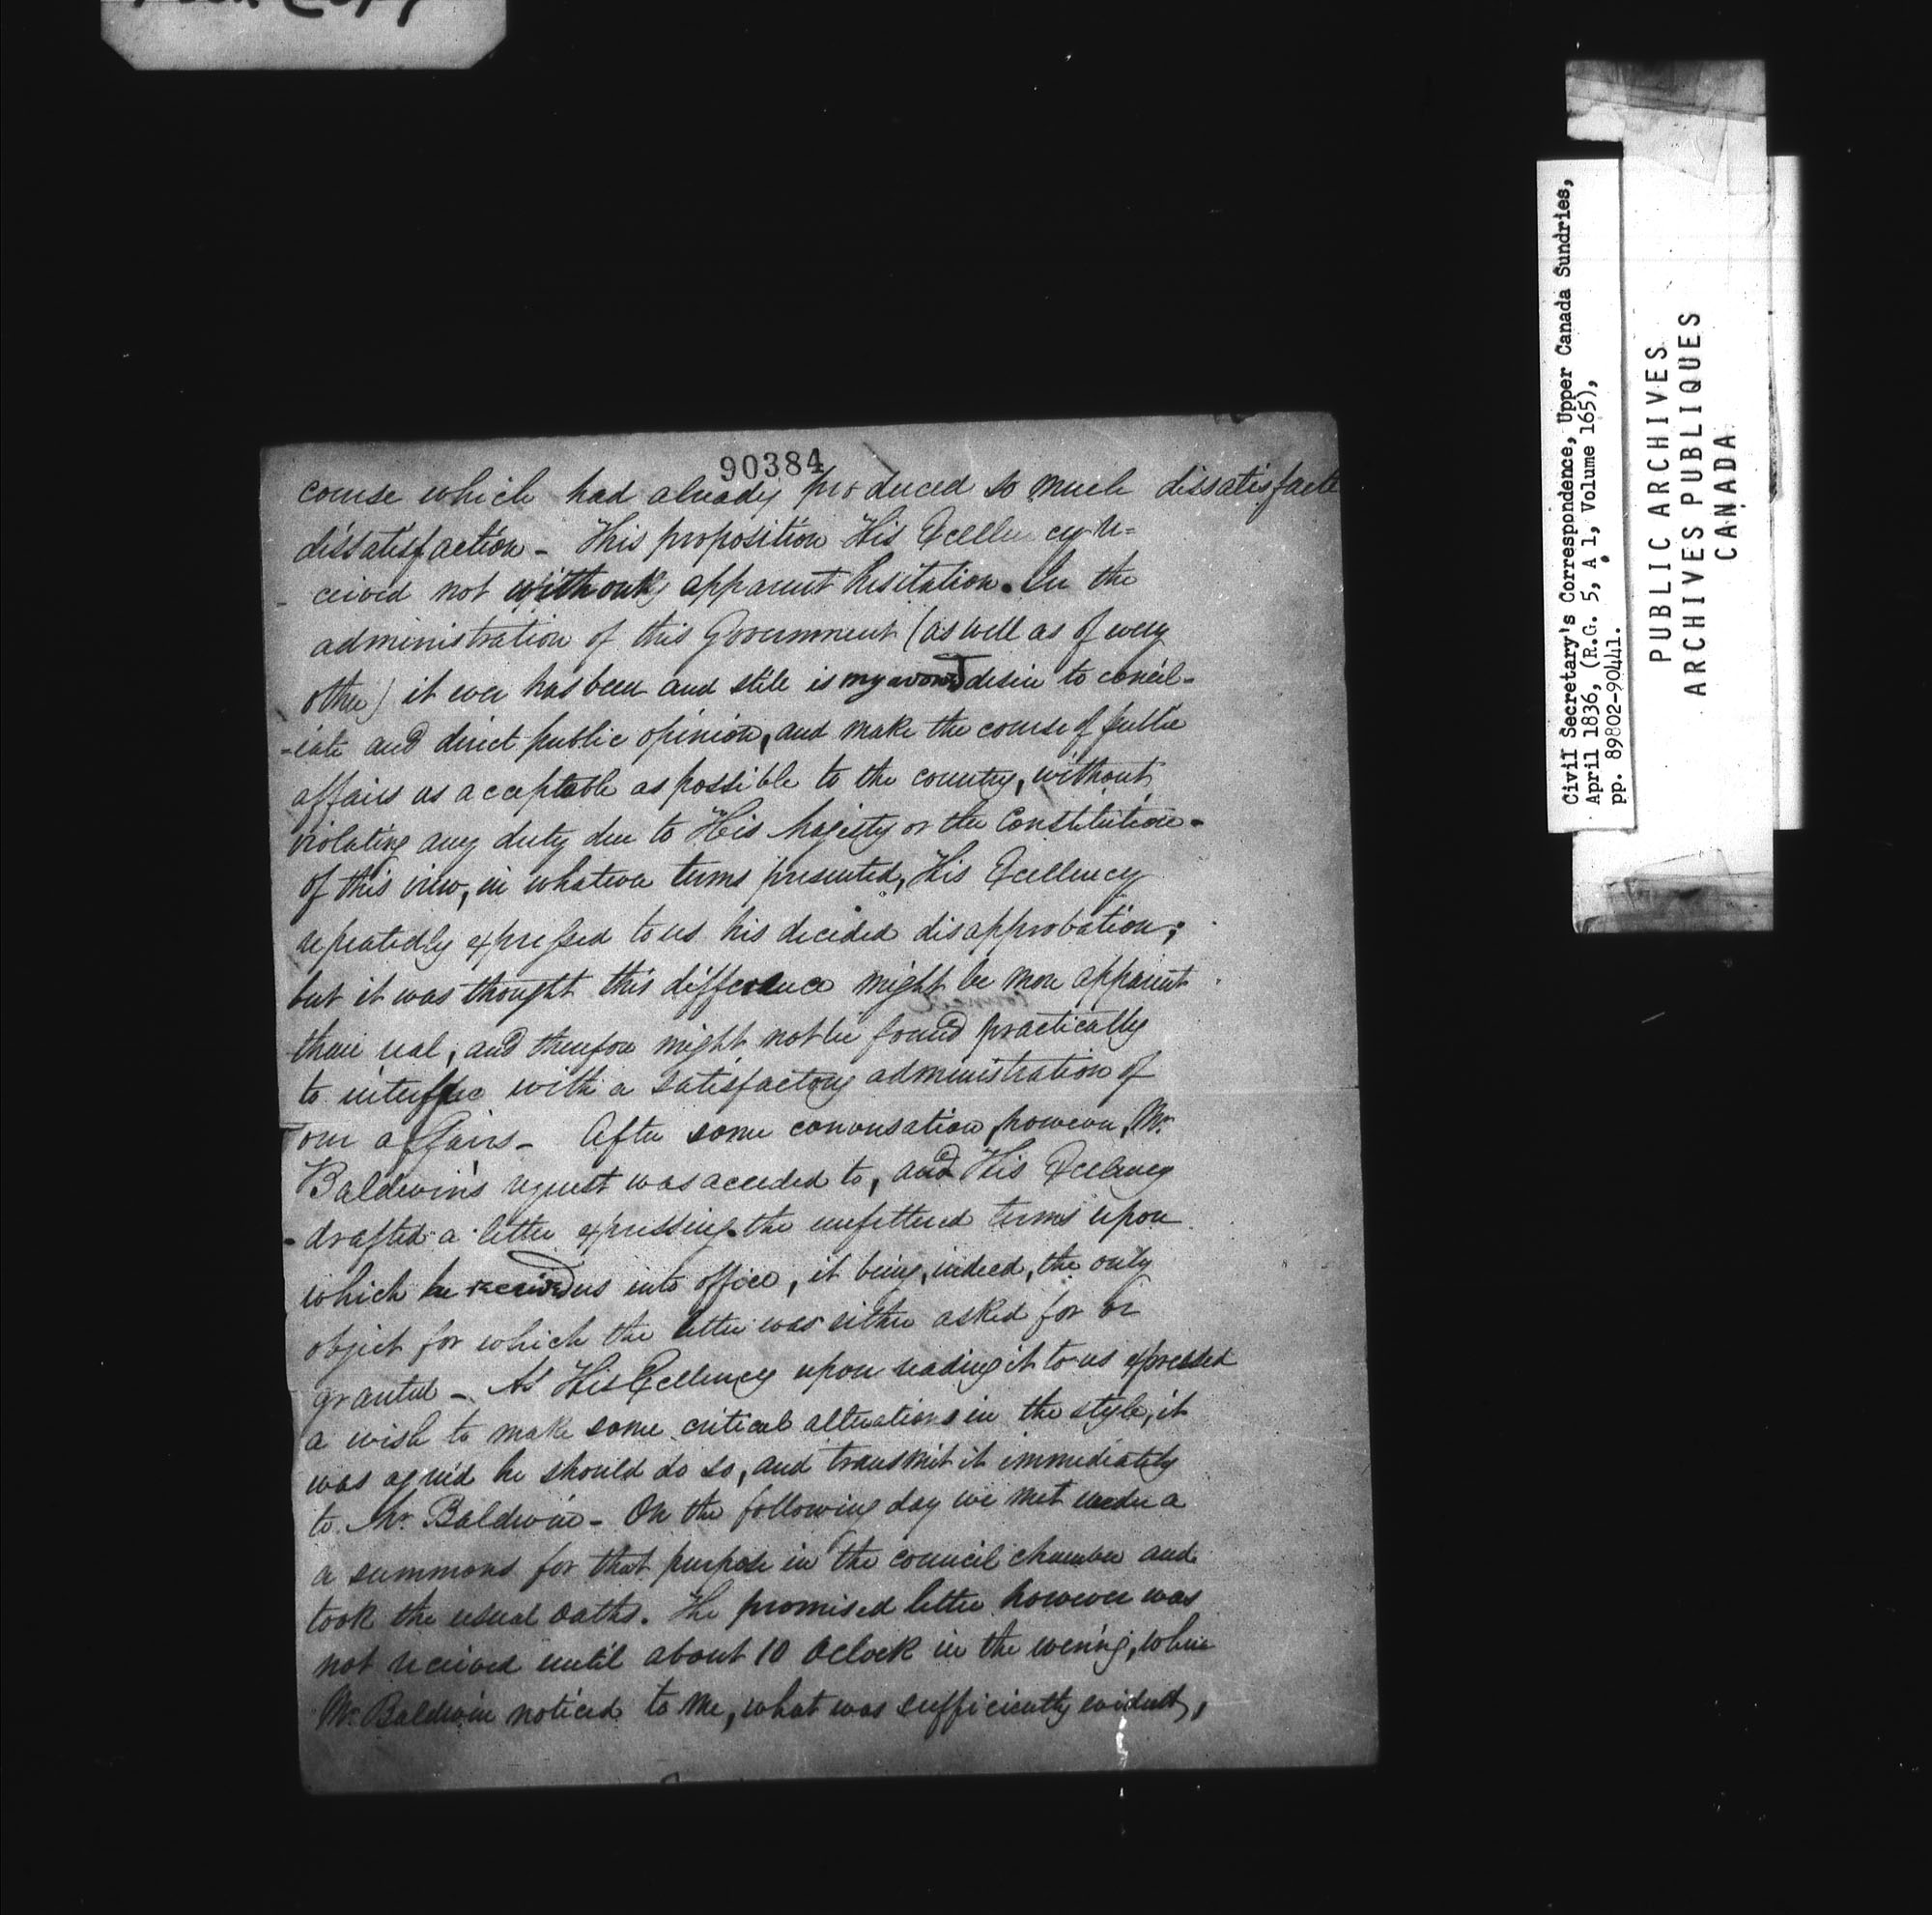 90384
course which had already produced so much dissatisfacti
dissatisfaction - This proposition His Excellency re=
ceived not without apparent hesitation. In the
administration of this Government (as well as of every
other) it ever has been and still is my avowed desire to concil-
-iate and direct public opinion, and make the course of public
affairs as acceptable as possible to the country, without
violating any duty due to His Majesty or the Constitution -
of this view, in whatever terms presented, His Excellency
repeatedly expressed to us his decided disapprobation;
but it was thought this difference might be more apparent
than real, and therefore might not be found practically
to interfere with a satisfactory administration of
our affairs - After some conversation, however, Mr.
Baldwin's request was acceded to, and His Excellency
drafted a letter expressing the unfettered terms upon
which he received us into office, it being, indeed, the only
object for which the letter was either asked for or
granted - As His Excellency upon reading it to us expressed
a wish to make some critical alterations in the style, it
was agreed he should do so, and transmit it immediately
to Mr. Baldwin - On the following day we met under a
a summons for that purpose in the council chamber and
took the usual oaths. The promised letter however was
not received until about 10 Oclock in the evening, when
Mr. Baldwin noticed to me, what was sufficiently evident,
Civil Secretary's Correspondence, Upper Canada Sundries,
April 1836, (R.G. 5, A 1, Volume 165),
pp. 89802-90441.
PUBLIC ARCHIVES
ARCHIVES PUBLIQUES
CANADA